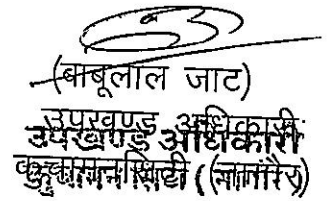 (बाबूलाल जाट)
उपखण्ड अधिकारी
उपखण्ड अधिकारी
कुचामन सिटी (नागौर)